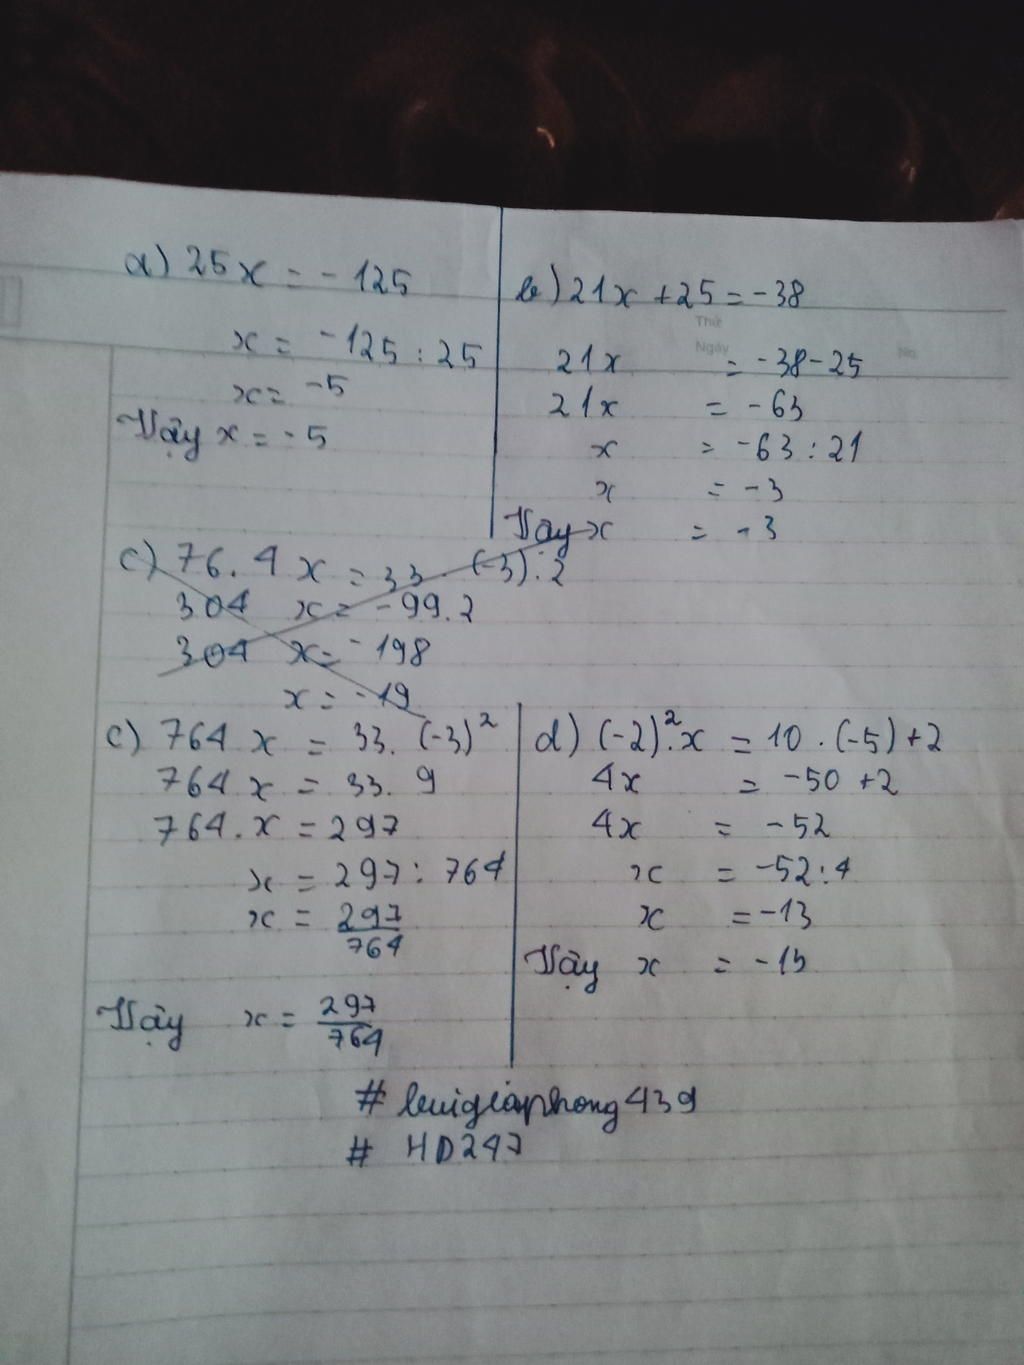 a) 25x = -125
x = -125 : 25
x = -5
Vậy x = -5
b) 21x + 25 = -38
Thứ
Ngày
No.
21x = -38-25
21x = -63
x = -63 : 21
x = -3
Vậy x = -3
c) 76.4 x = 33 . (-3).2
304 x = -99.2
304 x = -198
x = -19
c) 764 x = 33. (-3)²
764 x = 33. 9
764. x = 297
x = 297 : 764
x = 297/764
Vậy x = 297/764
d) (-2)².x = 10 . (-5) + 2
4x = -50 + 2
4x = -52
x = -52:4
x = -13
Vậy x = -13
# buigiaphong439
# HD247